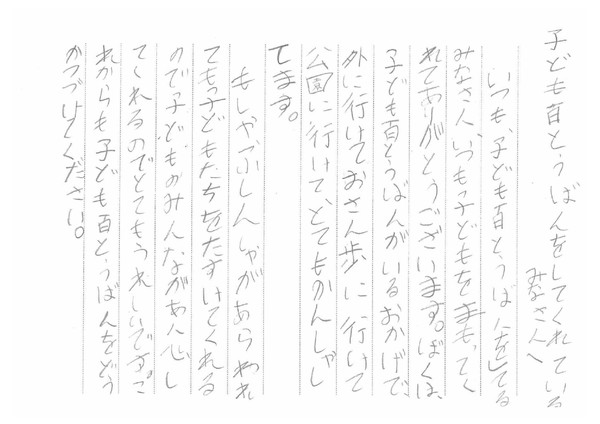 子ども百とうばんをしてくれている
みなさんへ
いつも、子ども百とうばんをしてる
みなさん、いつも子どもをまもってく
れてありがとうございます。ぼくは、
子ども百とうばんがいるおかげで、
外に行けておさん歩に行けて
公園に行けて、とてもかんしゃし
てます。
もしゃふしんしゃがあらわれ
ても子どもたちをたすけてくれる
ので子どものみんながあん心し
てくれるのでとてもうれしいです。こ
れからも子ども百とうばんをどう
かつづけてください。